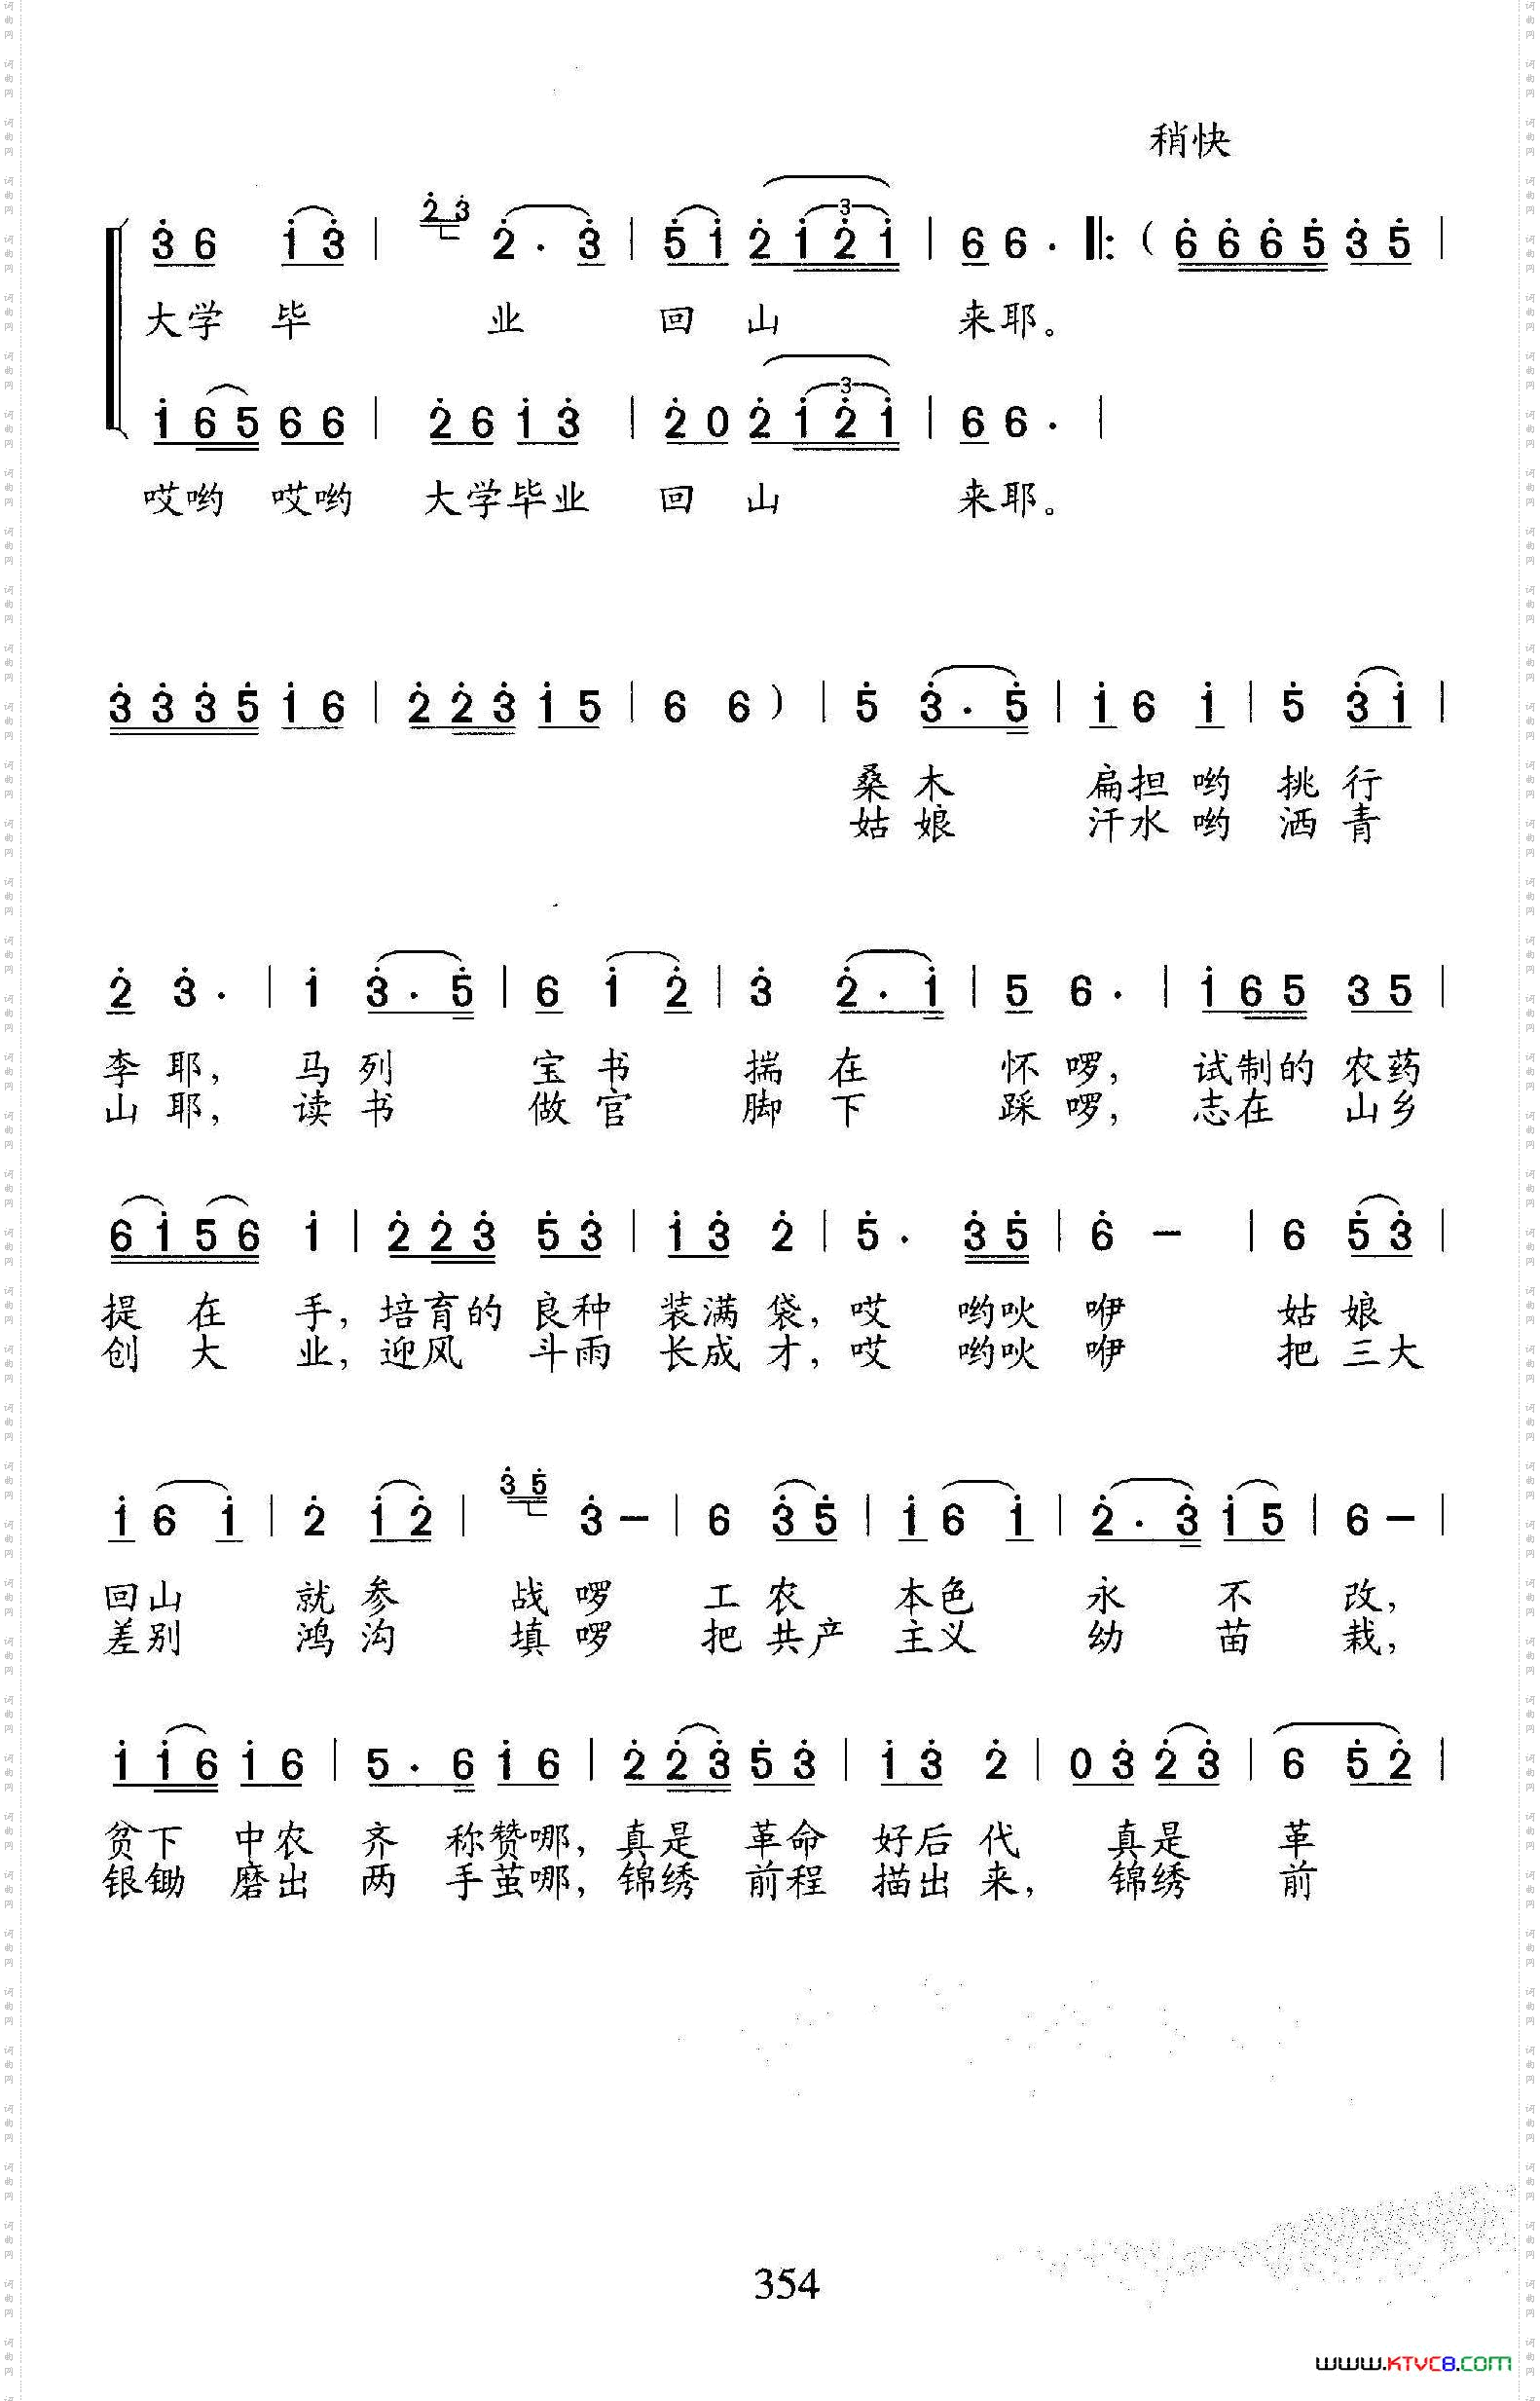 稍快
3 6 1 3 | 2 3 2 . 3 | 5 1 2 3 1 2 1 | 6 6 . ‖: ( 6 6 6 5 3 5 |
大学 毕 业 回 山 来耶。
1 6 5 6 6 | 2 6 1 3 | 2 0 2 3 1 2 1 | 6 6 . |
哎哟 哎哟 大学毕业 回 山 来耶。
3 3 3 5 1 6 | 2 2 3 1 5 | 6 6 ) | 5 3 . 5 | 1 6 1 | 5 3 1 |
桑木 扁担 哟 挑行
姑娘 汗水 哟 洒青
2 3 . | 1 3 . 5 | 6 1 2 | 3 2 . 1 | 5 6 . | 1 6 5 3 5 |
李 耶, 马列 宝书 揣在 怀啰, 试制的 农药
山 耶, 读书 做官 脚下 踩啰, 志在 山乡
6 1 5 6 1 | 2 2 3 5 3 | 1 3 2 | 5 . 3 5 | 6 – | 6 5 3 |
提 在 手, 培育的 良种 装满 袋, 哎 哟吙 咿 姑娘
创 大 业, 迎风 斗雨 长成 才, 哎 哟吙 咿 把三大
1 6 1 | 2 1 2 | 3 5 3 – | 6 3 5 | 1 6 1 | 2 . 3 1 5 | 6 – |
回山 就参 战啰 工农 本色 永 不 改,
差别 鸿沟 填啰 把共产 主义 幼 苗 栽,
1 1 6 1 6 | 5 . 6 1 6 | 2 2 3 5 3 | 1 3 2 | 0 3 2 3 | 6 5 2 |
贫下 中农 齐 称赞哪, 真是 革命 好后 代 真是 革
银锄 磨出 两 手茧哪, 锦绣 前程 描出 来, 锦绣 前
354
www.KTVC8.COM